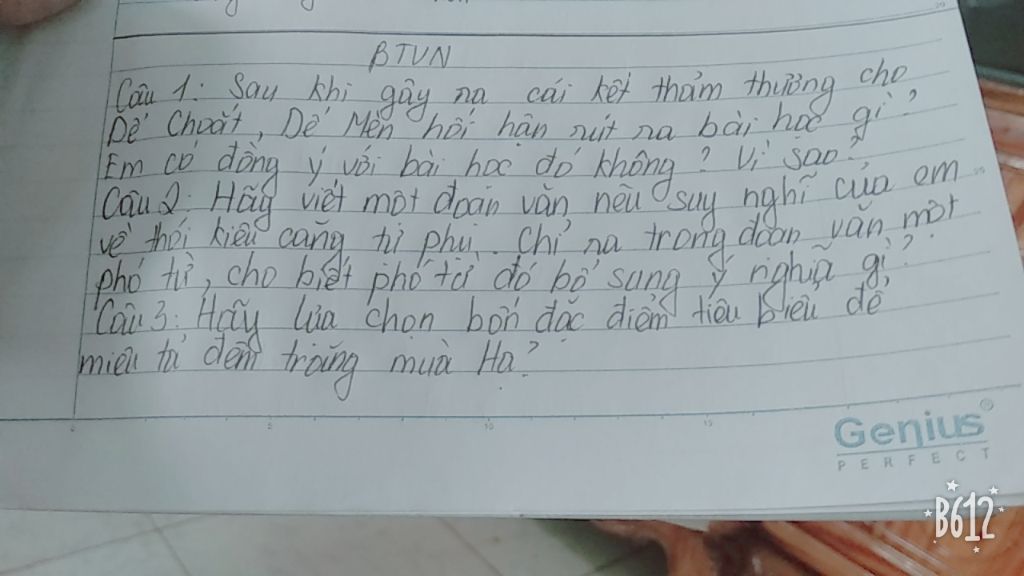 BTVN
Câu 1: Sau khi gây ra cái kết thảm thương cho
Dế Choắt, Dế Mèn hối hận rút ra bài học gì?
Em có đồng ý với bài học đó không? Vì sao?
Câu 2: Hãy viết một đoạn văn nêu suy nghĩ của em
về thói kiêu căng tự phụ. Chỉ ra trong đoạn văn một
phó từ, cho biết phó từ đó bổ sung ý nghĩa gì?
Câu 3: Hãy lựa chọn bốn đặc điểm tiêu biểu để
miêu tả đêm trăng mùa Hạ?
5
10
15
Genius
PERFECT
B612